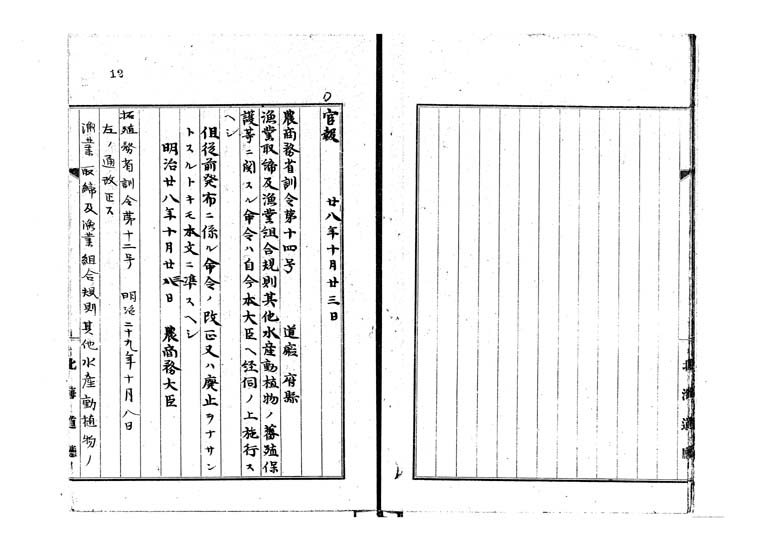 12
官報　廿八年十月廿三日
農商務省訓令第十四号　道廳 府縣
漁業取締及漁業組合規則其他水産動植物ノ蕃殖保
護等ニ関スル命令ハ自今本大臣ヘ経伺ノ上施行ス
ヘシ
但従前発布ニ係ル命令ノ改正又ハ廃止ヲナサン
トスルトキモ本文ニ準スヘシ
明治廿八年十月廿三日　農商務大臣
拓殖務省訓令第十二号　明治二十九年十月八日
左ノ通改正ス
漁業取締及漁業組合規則其他水産動植物ノ
北海道廳
北海道廳